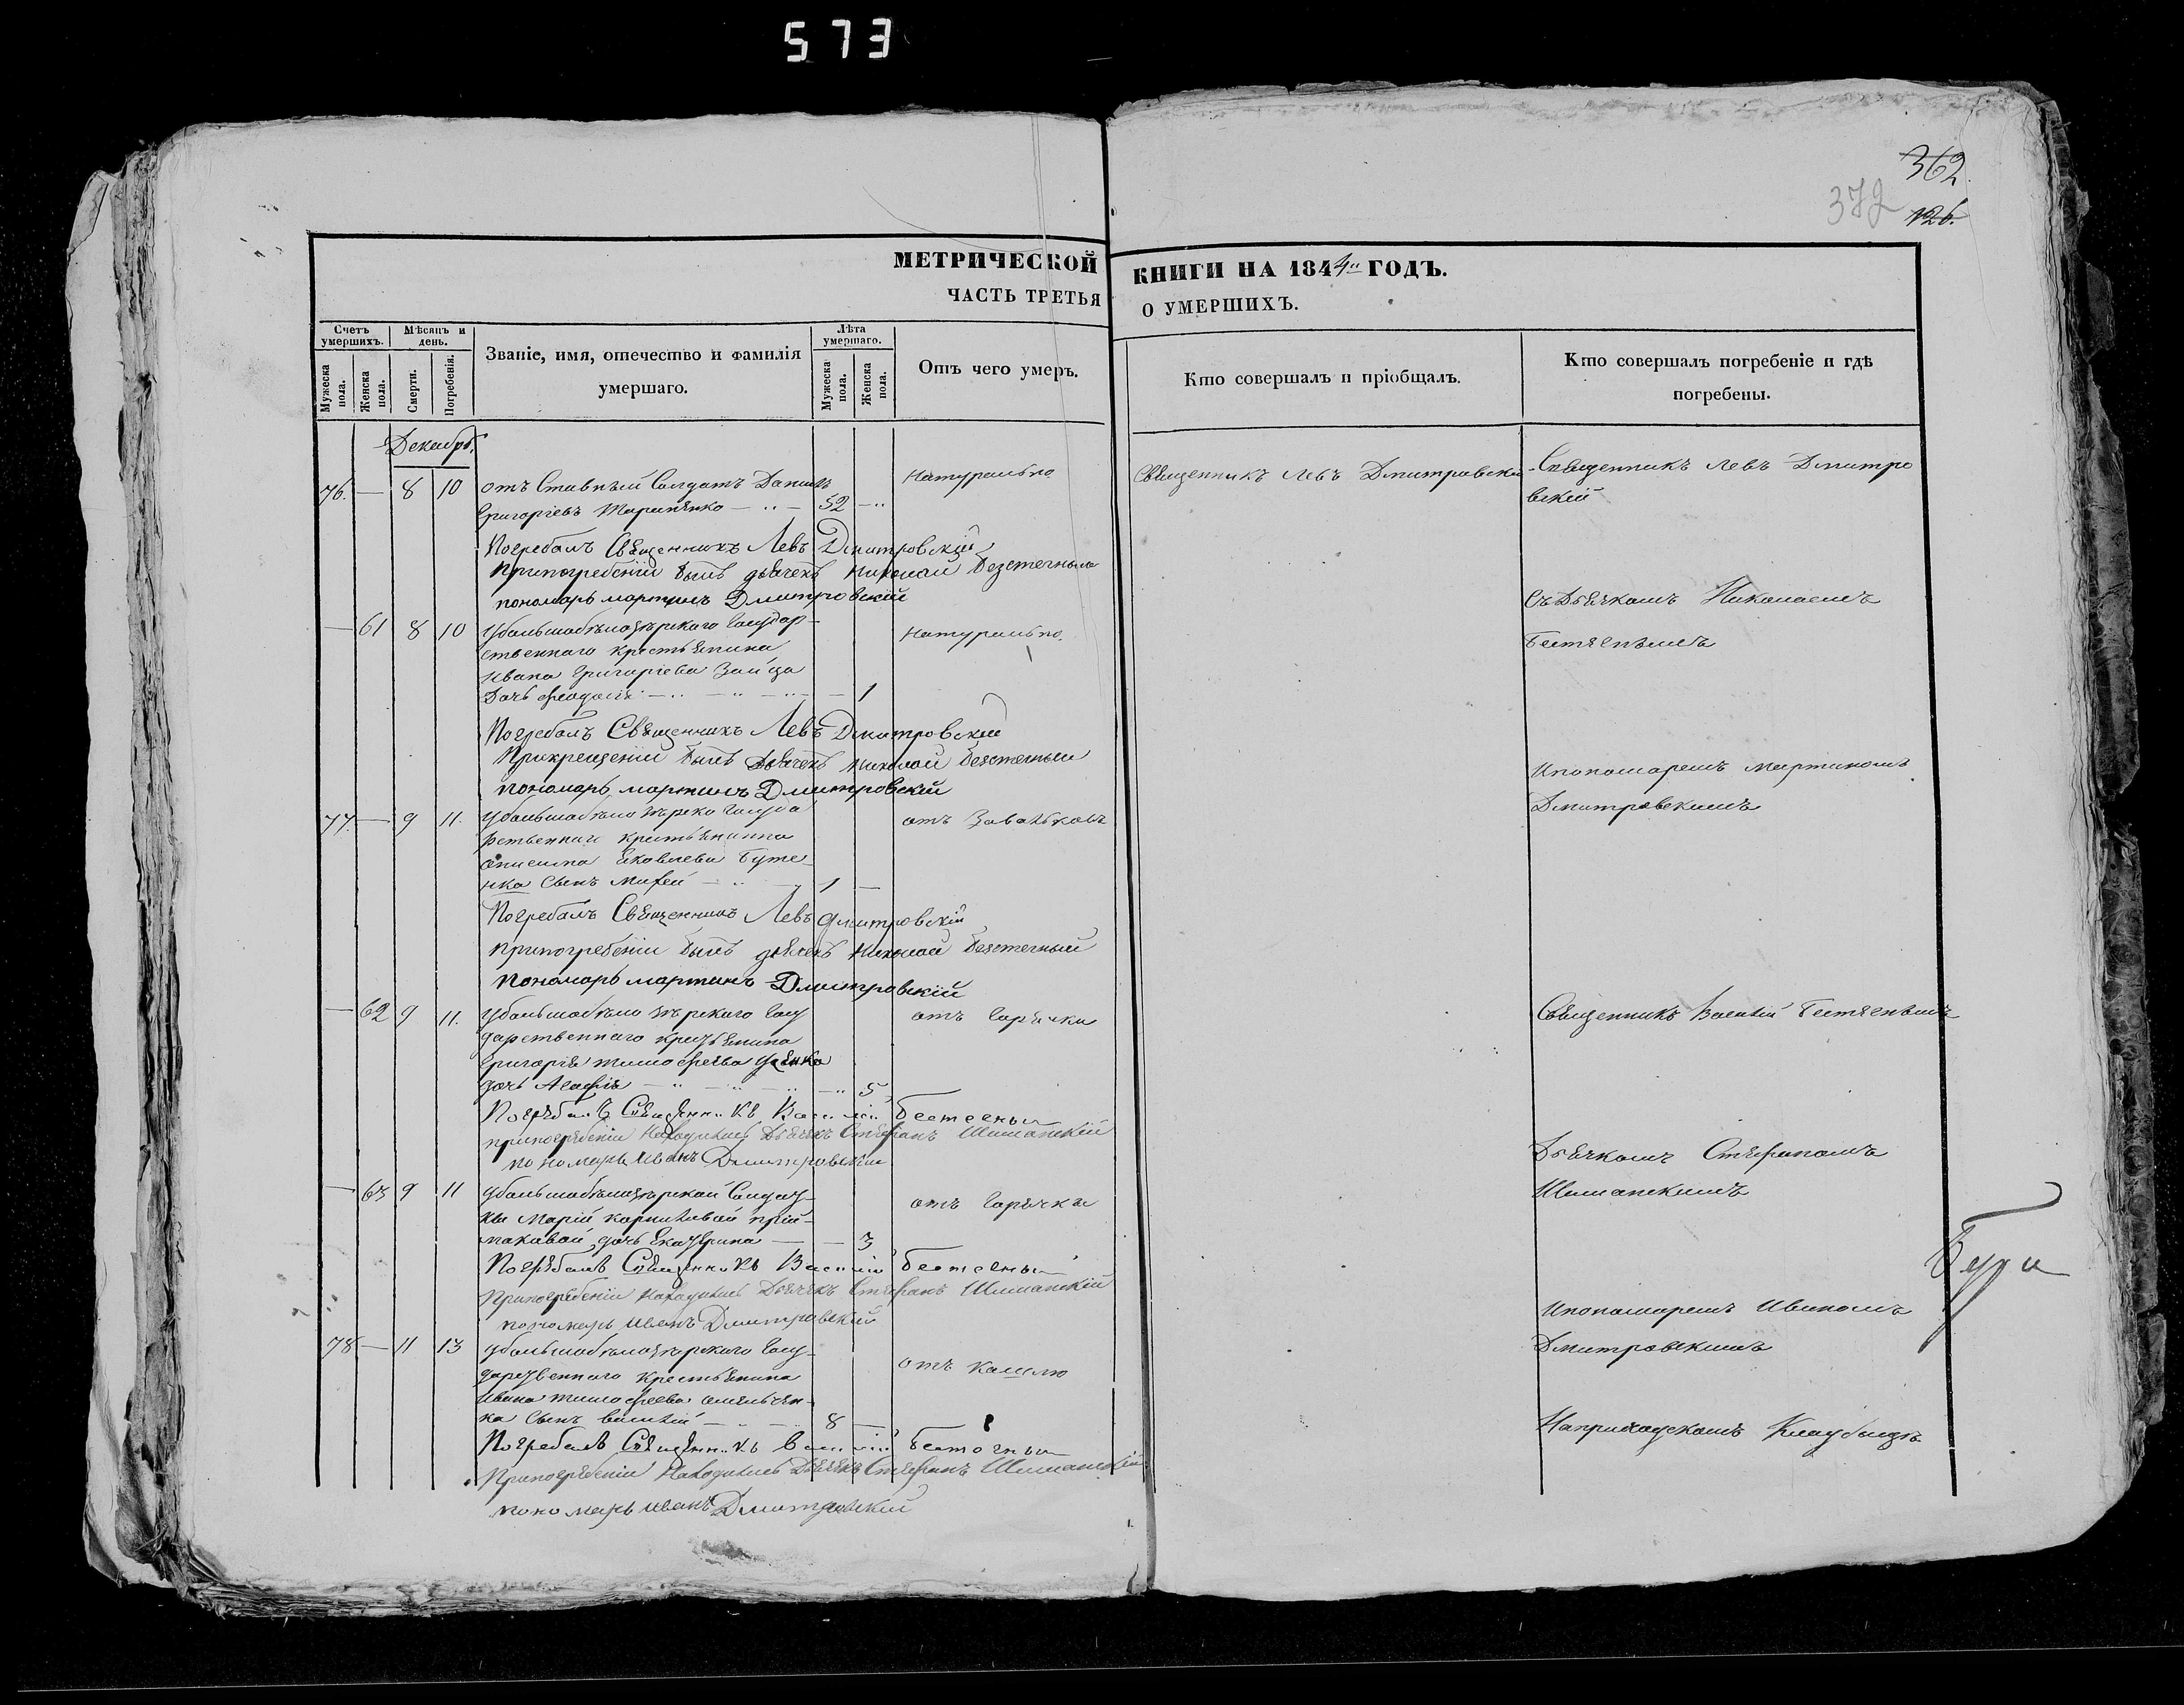 573
362
372
126.
МЕТРИЧЕСКОЙ КНИГИ НА 1844 ГОДЪ.
ЧАСТЬ ТРЕТЬЯ О УМЕРШИХЪ.
Счетъ умершихъ.
Мужеска пола.
Женска пола.
Мѣсяцъ и день.
Смерти.
Погребенія.
Званіе, имя, отечество и фамилія умершаго.
Лѣта умершаго.
Мужеска пола.
Женска пола.
Отъ чего умеръ.
Кто совершалъ и пріобщалъ.
Кто совершалъ погребеніе и гдѣ погребены.
Декабрь.
76. — 8 10 отъ Ставный Солдатъ Данiилъ
Григоріевъ 52 —
Натурально
Священникъ Левъ Дмитровскій
Священникъ Левъ Дмитро
вскій
Погребалъ Священникъ Левъ Дмитровскій
Припогребеніи былъ дьячекъ Николай Безстечный
пономарь мартинъ Дмитровскій
Съ Дьячкомъ Николаемъ
— 61 8 10 Государ-
ственнаго крестьянина
Ивана Григоріева Зайца
Дочь Феодосія — 1
Натурально
Погребалъ Священникъ Левъ Дмитровскій
Прикрещеніи былъ дьячекъ Николай Безстечный
пономарь мартинъ Дмитровскій
Ипономаремъ Мартиномъ
Дмитровскимъ
77. — 9 11. Госуда
рственнаго крестьянина
Яковлева Буте-
нка Сынъ 1 —
отъ
Погребалъ Священникъ Левъ Дмитровскій
припогребеніи былъ дьячекъ Николай Безстечный
пономарь мартинъ Дмитровскій
— 62 9 11. Госу
дарственнаго крестьянина
Григорія Тимофеева
дочь Агафія — 5
отъ Горячки
Священникъ Василій
Погребалъ Священникъ Василій
припогребеніи Находились Дьячекъ Стефанъ Шиманскій
пономарь Иванъ Дмитровскій
Дьячкомъ Стефаномъ
Шиманскимъ
— 63 9 11 Солдат-
ки Маріи
дочь Екатерина — 3
отъ Горячки
Погребалъ Священникъ Василій
Припогребеніи Находились Дьячекъ Стефанъ Шиманскій
пономарь Иванъ Дмитровскій
Ипономаремъ Иваномъ
Дмитровскимъ
78 — 11 13 Госу-
дарственнаго Крестьянина
Ивана Тимофеева Омельчен-
ка Сынъ Василій — 8 —
отъ Кашлю
Погребалъ Священникъ Василій
Припогребеніи Находились Дьячекъ Стефанъ Шиманскій
пономарь Иванъ Дмитровскій
Наприходскомъ Кладбищѣ